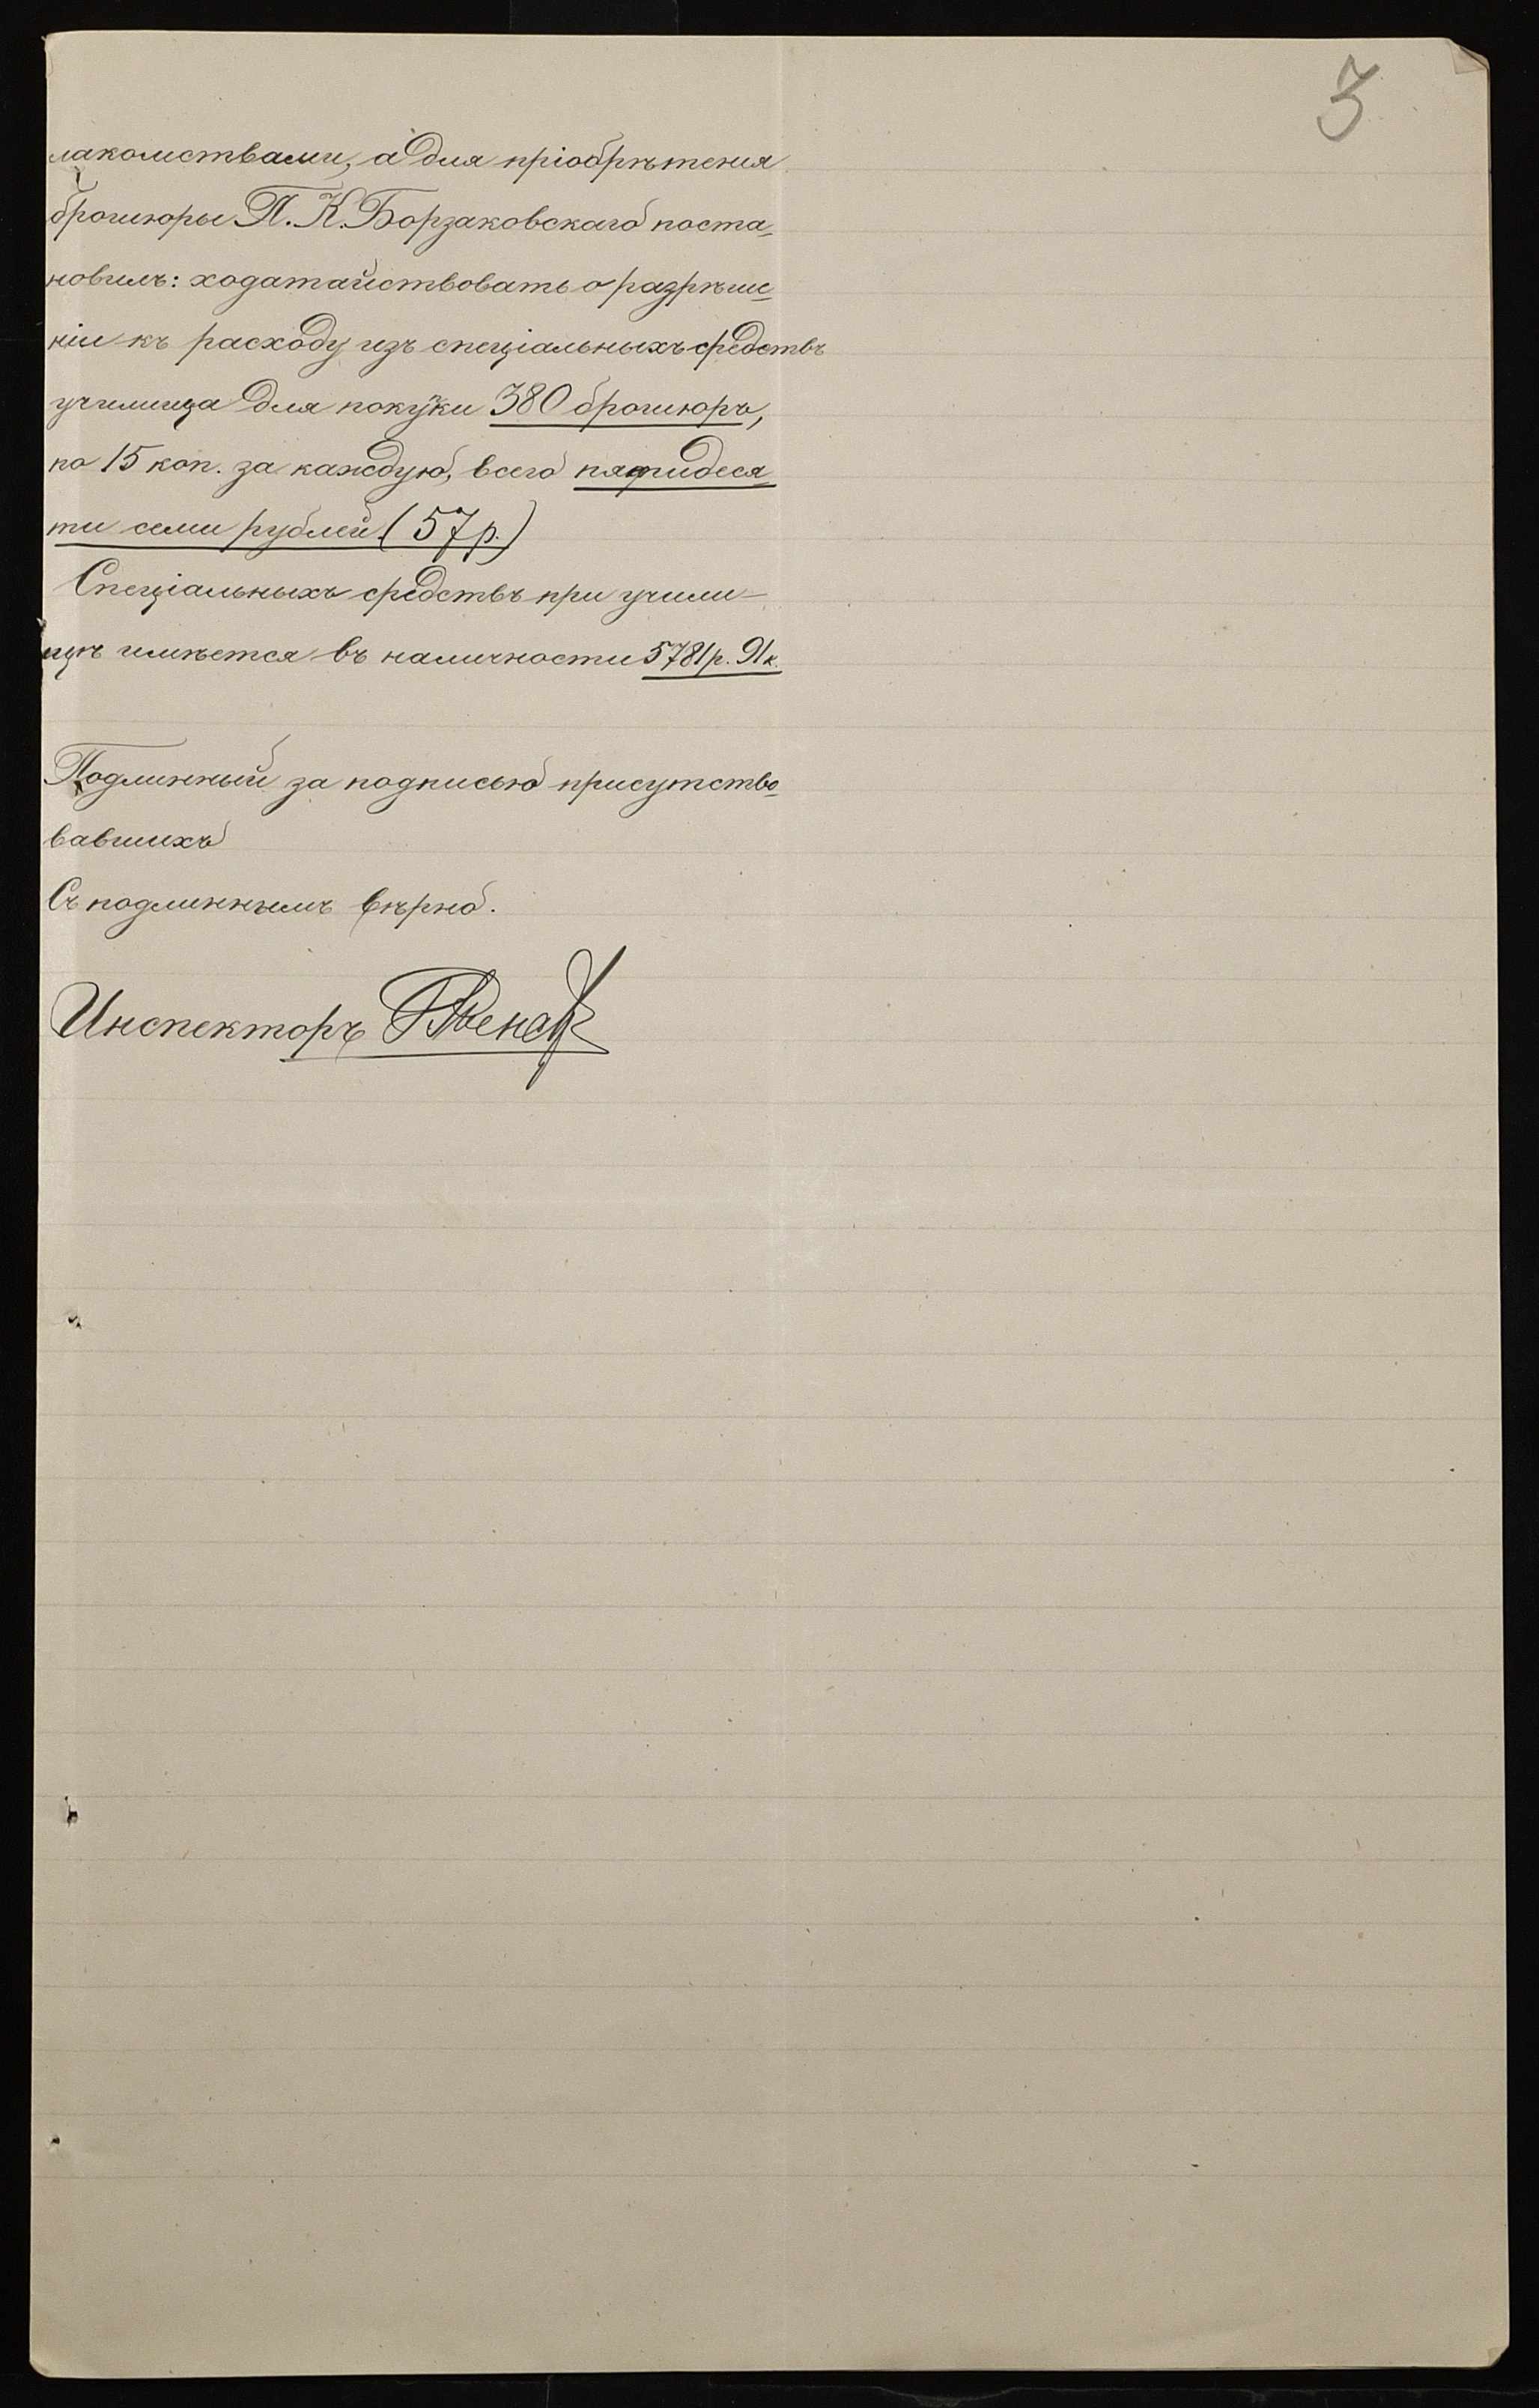 3
лакомствами, а для пріобрѣтенія
брошюры П. К. Борзаковскаго поста-
новилъ: ходатайствовать о разрѣше-
ніи къ расходу изъ спеціальныхъ средствъ
училища для покупки 380 брошюръ,
по 15 коп. за каждую, всего пятидеся
ти семи рублей (57 р.)
Спеціальныхъ средствъ при учили-
щѣ имѣется въ наличности 5781 р. 91 к.
Подлинный за подписью присутство-
вавшихъ
Съ подлиннымъ вѣрно.
Инспекторъ